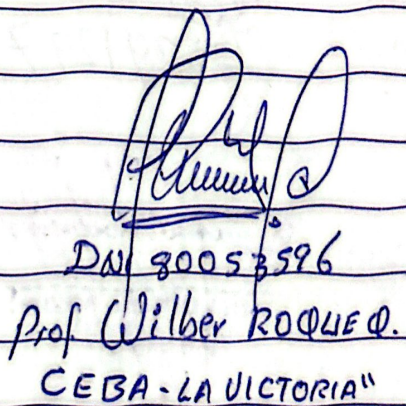 DNI 80053596
Prof. Wilber ROQUE Q.
CEBA - LA VICTORIA"